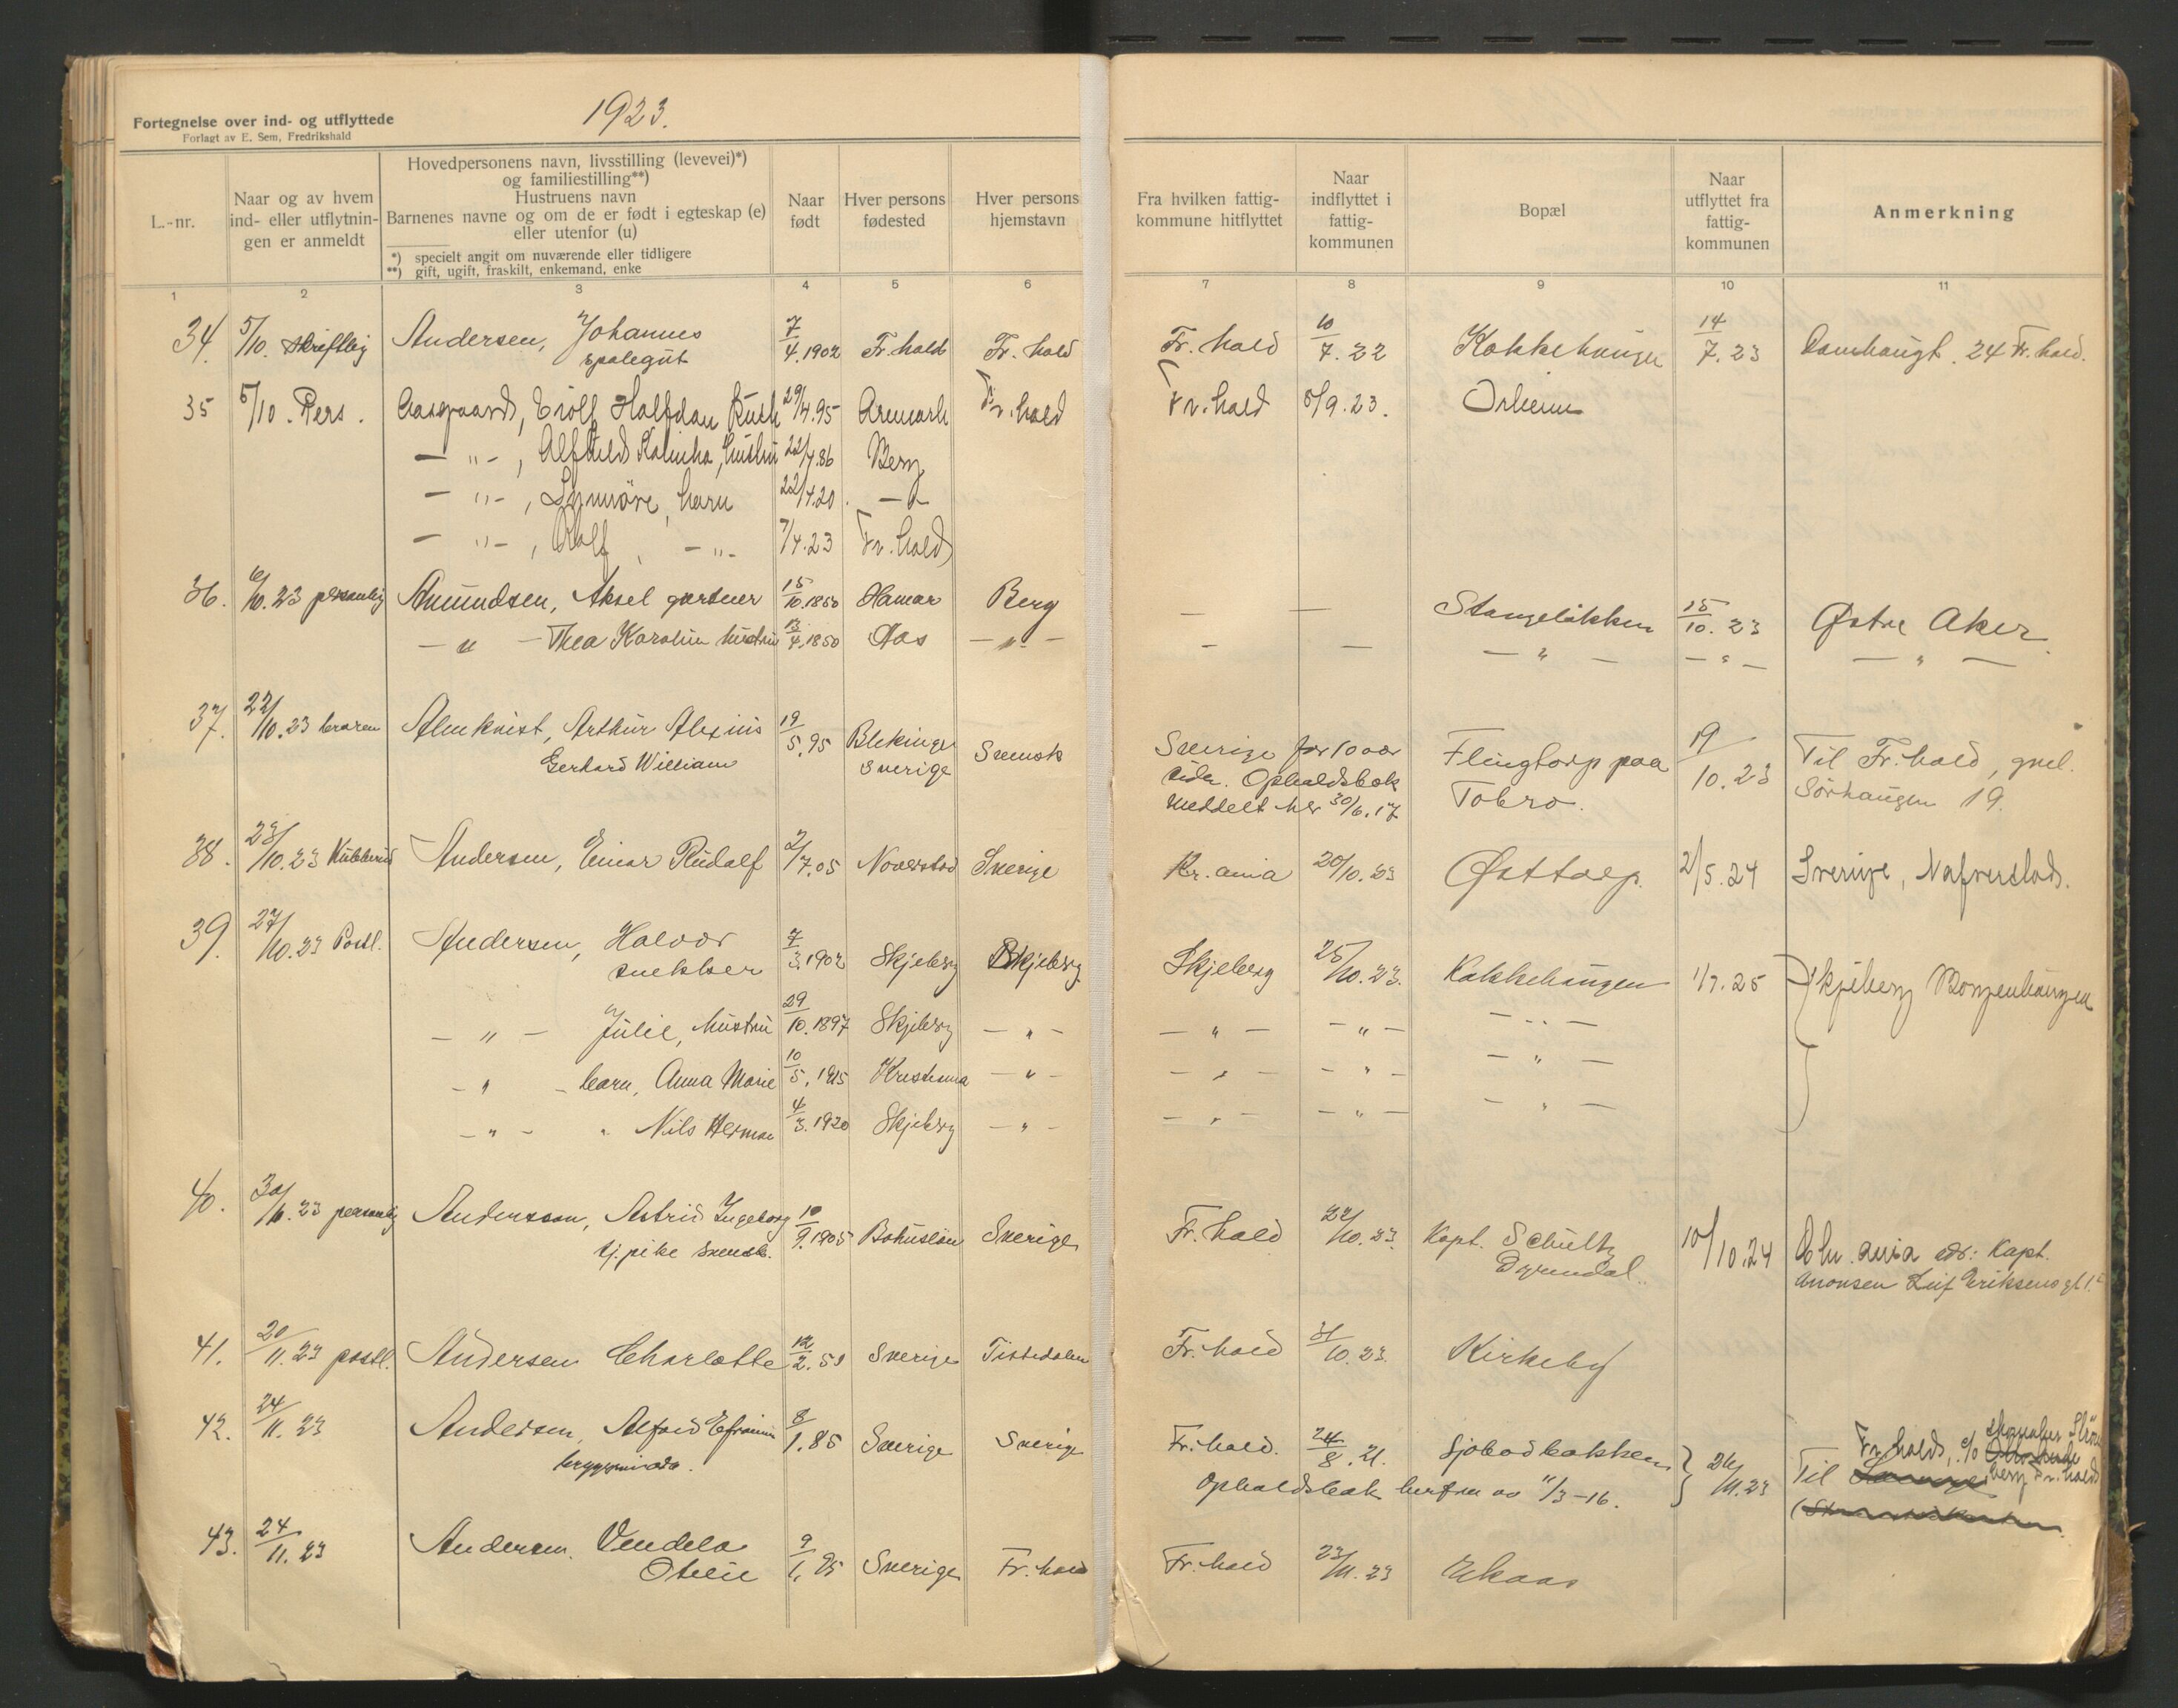 Fortegnelse over ind- og utflyttede
Forlagt av E. Sem, Fredrikshald
1923.
L.-nr.
Naar og av hvem
ind- eller utflytnin-
gen er anmeldt
Hovedpersonens navn, livsstilling (levevei)*)
og familiestilling**)
Hustruens navn
Barnenes navne og om de er født i egteskap (e)
eller utenfor (u)
*) specielt angit om nuværende eller tidligere
**) gift, ugift, fraskilt, enkemand, enke
Naar
født
Hver persons
fødested
Hver persons
hjemstavn
Fra hvilken fattig-
kommune hitflyttet
Naar
indflyttet i
fattig-
kommunen
Bopæl
Naar
utflyttet fra
fattig-
kommunen
Anmerkning
1 2 3 4 5 6 7 8 9 10 11
34. 5/10. skriftlig Andersen, Johannes 7/4.1902 Fr.hald Fr.hald Fr.hald 10/7.22 Kokkehaugen 14/7.23 Damhaugt. 24 Fr.hald.
spolegut
35 5/10. Pers. Aasgaard, Halfdan 29/4.95 Aremark Fr.hald Fr.hald 5/9.23.
— " — , Alfhild hustru 22/4.86 Berg
— " — , Synnöve, barn 22/4.20 — " —
— " — , Rolf, — " — 7/4.23 Fr.hald
36. 6/10.23 personlig Amundsen, Aksel gartner 15/10.1850 Hamar Berg — — Stangeløkken 15/10.23 Østre Aker
— " — Thea Karoline hustru 13/4.1850 Aas — " — — — — " — — " — — " —
37. 22/10.23 broren Almkvist, Arthur Alexius 19/5.95 Blekinge Svensk Sverige for 10 aar Flingtorp paa 19/10.23 Til Fr.hald, gml.
Gerhard William Sverige siden. Opholdsbok Tobro. Sörhaugen 19.
meddelt her 30/6.17
38. 23/10.23 Kubberud Andersen, Einar Rudolf 2/7.05 Naverstad Sverige Kr.ania 20/10.23 Østtorp. 2/5.24 Sverige, Nafverstad.
39. 27/10.23 Postl. Andersen, Halvor 7/3.1902 Skjeberg Skjeberg Skjeberg 25/10.23. Kokkehaugen 1/7.25 Skjeberg Borgenhaugen
snekker
— " — Julie, hustru 29/10.1897 Skjeberg — " — — " — — " — — " —
— " — barn, Anna Marie 10/5.1915 Kristiania — " — — " — — " — — " —
— " — " Nils Herman 4/3.1920 Skjeberg — " — — " — — " — — " —
40. 30/10.23 personlig Andersson, Astrid Ingeborg 10/9.1905 Bohuslän Sverige Fr.hald 22/10.23. Kapt. Schultz 10/10.24 Chr.ania adr: Kapt.
tj.pike svensk. Dyrendal. Leif Eriksens gt. 1
41. 20/11.23 postl. Andersen Charlotte 12/2.59 Sverige Tistedalen Fr.hald 31/10.23. Kirkeby
42. 24/11.23 Andersen, Alfred Efraim 8/1.85 Sverige Sverige Fr.hald. 24/8.21. Sjøbodbakken 26/11.23 Til Fr.hald, c/o
Opholdsbok herfra av 11/3-16. Berg Fr.hald
43. 24/11.23 Andersen. Vendela 9/1.85 Sverige Fr.hald Fr.hald 23/11.23 Ekaas
Otilie